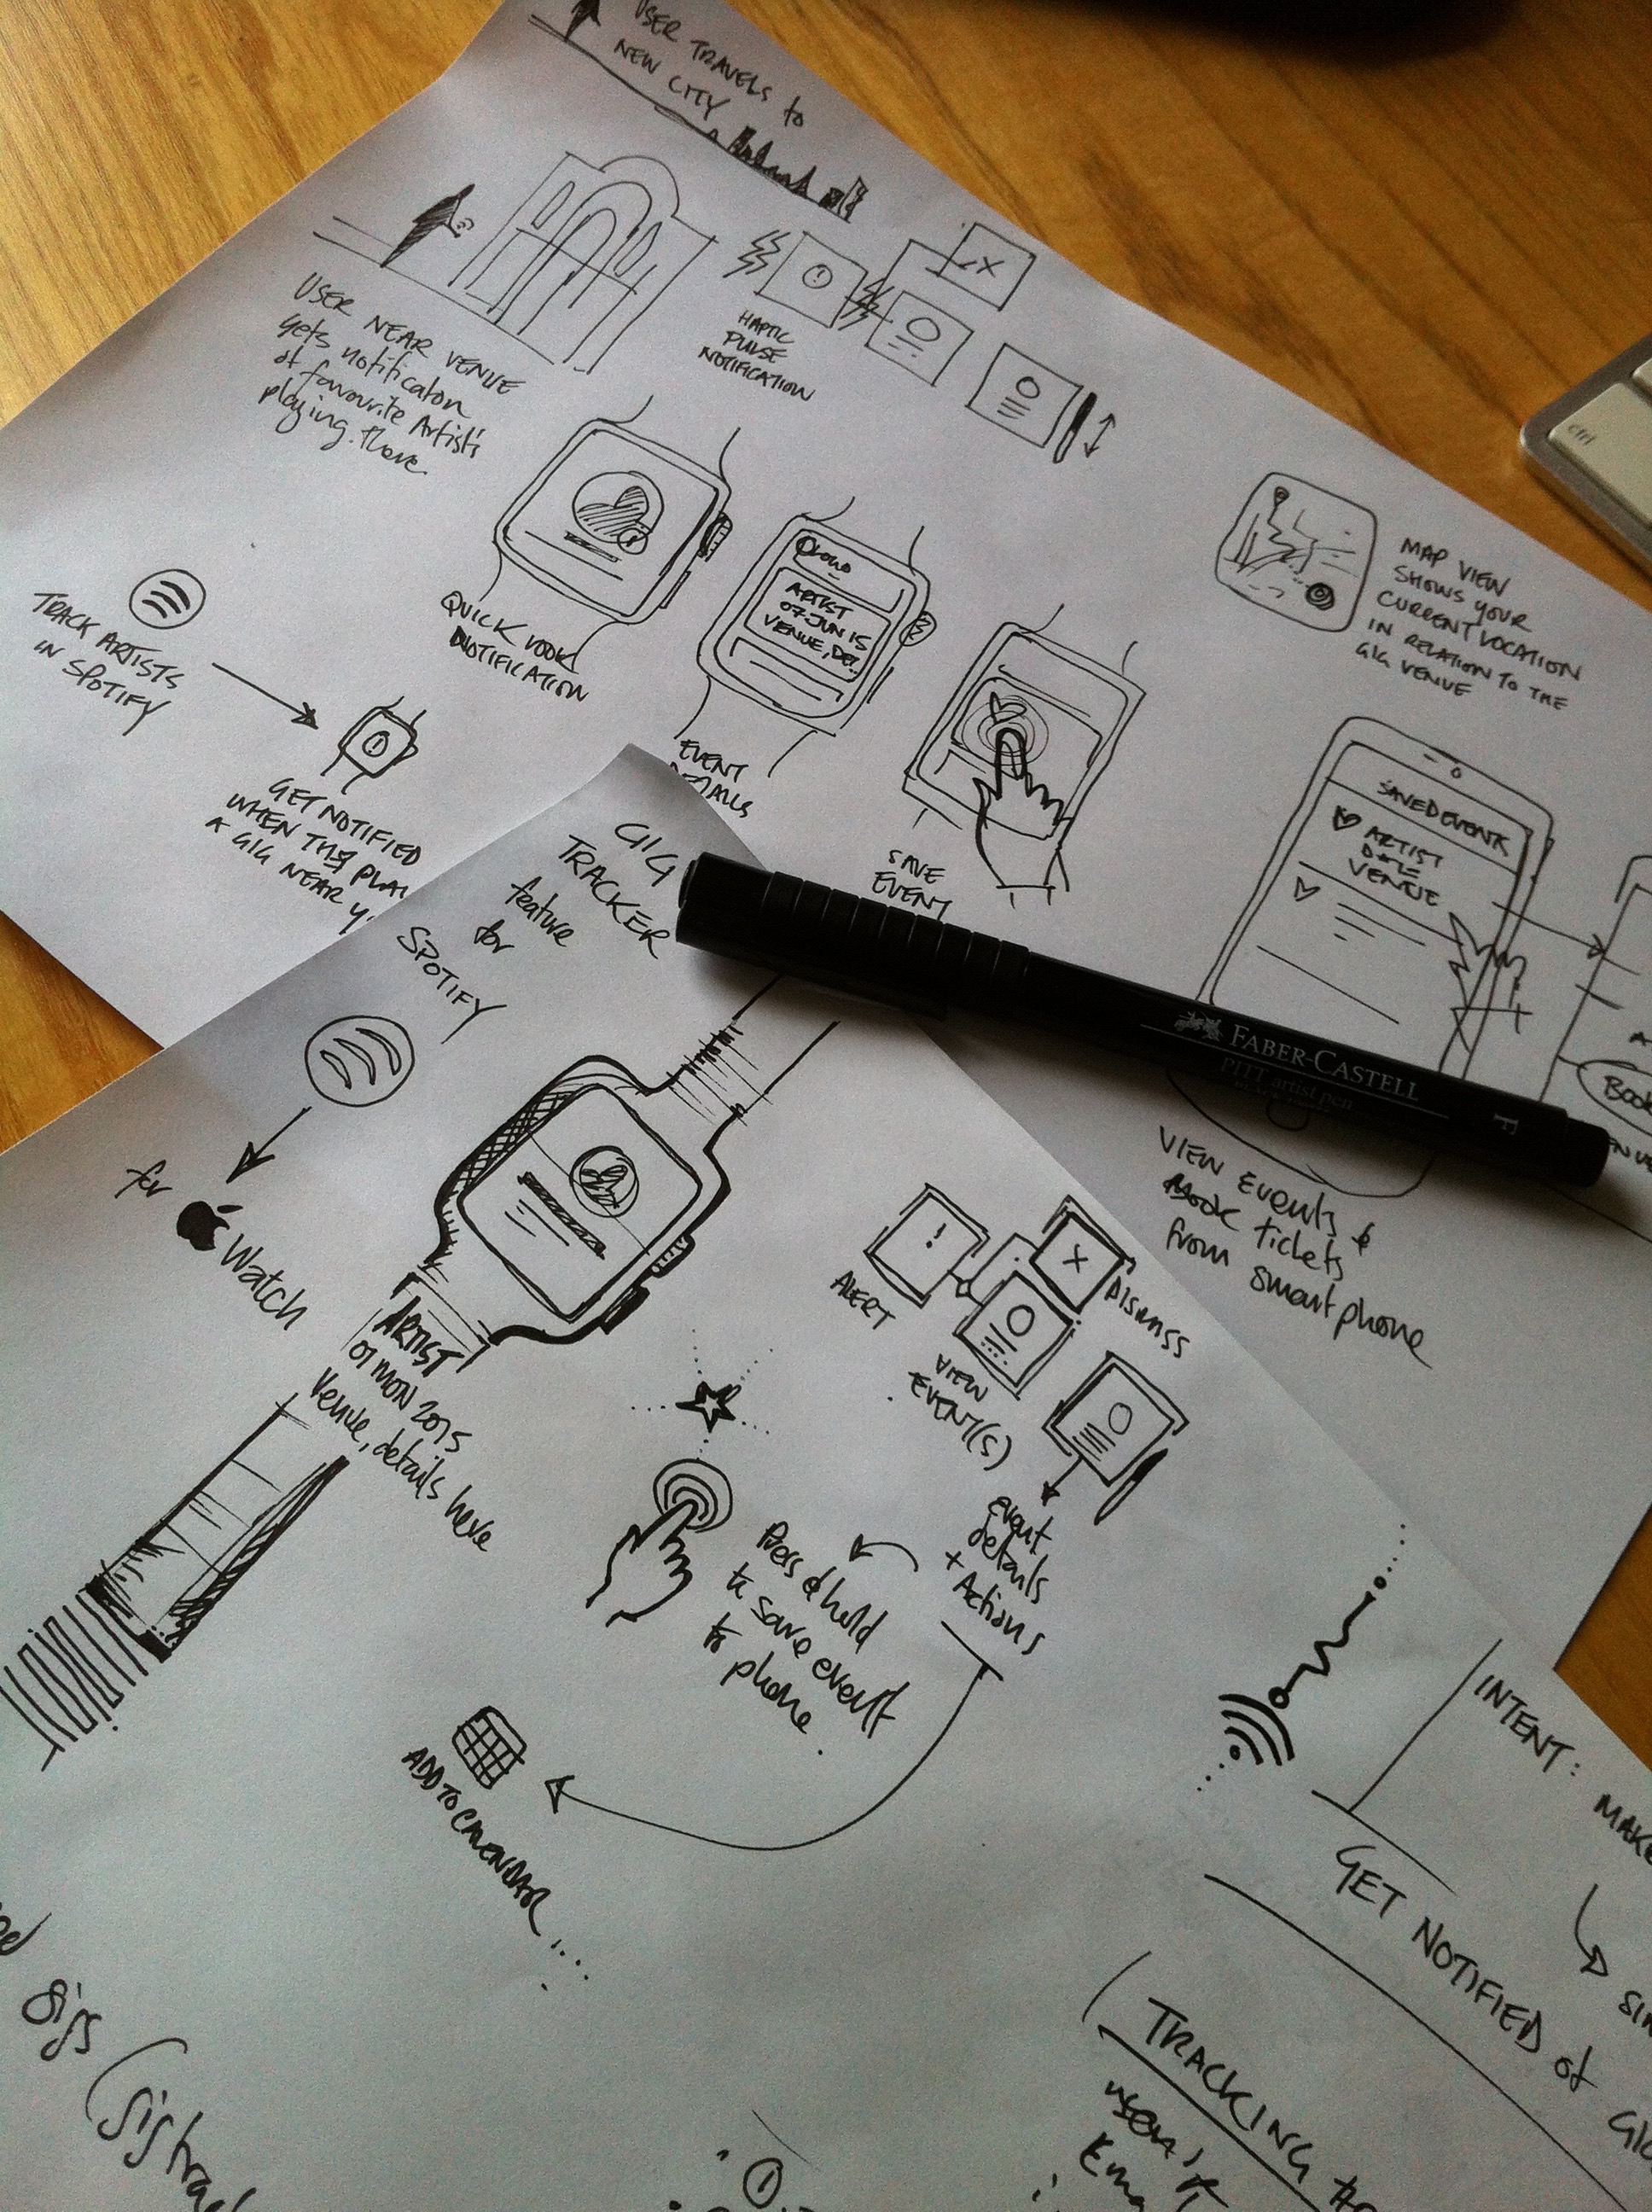 USER TRAVELS to
NEW CITY
USER NEAR VENUE
gets notificaton
of favourite Artist's
playing there
HAPTIC
PULSE
NOTIFICATION
TRACK ARTISTS
IN SPOTIFY
GET NOTIFIED
A GIG NEAR
QUICK LOOK
NOTIFICATION
ARTIST
07 JUN 15
VENUE, DET.
EVENT
DETAILS
SAVE
EVENT
MAP VIEW
SHOWS YOUR
CURRENT LOCATION
IN RELATION TO THE
GIG VENUE
SAVED EVENTS
ARTIST
DATE
VENUE
Book
VIEW EVENTS &
Book tickets
from smartphone
ctrl
FABER-CASTELL
PITT artist pen
F
GIG
TRACKER
feature
for
SPOTIFY
for Watch
ARTIST
01 MON 2015
Venue, details here
ALERT
DISMISS
VIEW
EVENT(S)
Event
details
+ Actions
Press & hold
to save event
to phone.
ADD TO CALENDAR...
INTENT:
MAKE
GET NOTIFIED of
TRACKING
user's
gigs